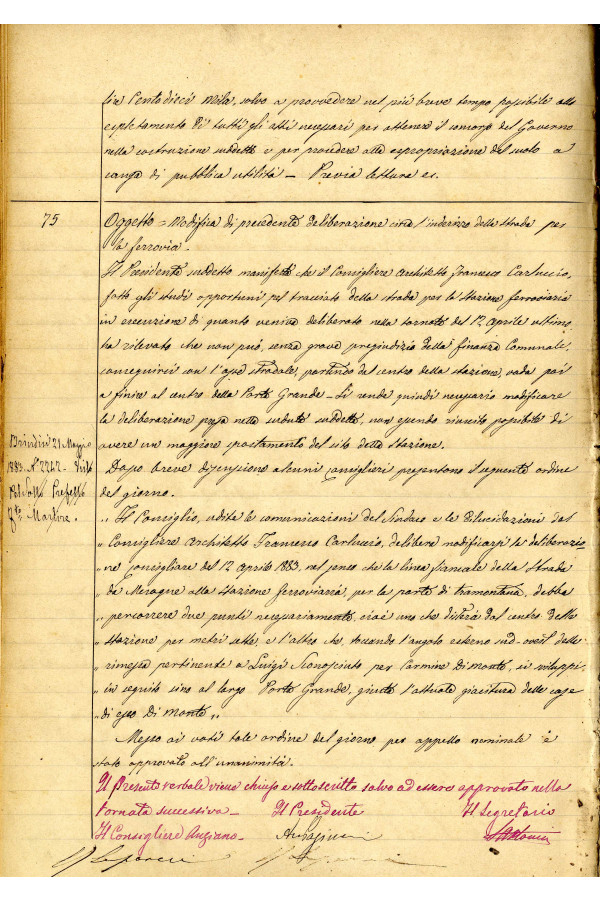 lire Centodieci mila, salvo a provvedere nel più breve tempo possibile allo
espletamento di tutti gli atti necessari per ottenere il concorso del Governo
nella costruzione suddetta e per procedere alla espropriazione del suolo a
causa di pubblica utilità — Previa lettura ec.
75
Oggetto = Modifica di precedente deliberazione circa l'indirizzo della strada per
la ferrovia.
Il Presidente suddetto manifesta che il Consigliere Architetto Francesco Carluccio,
fatti gli studi opportuni pel tracciato della strada per la stazione ferroviaria
in esecuzione di quanto veniva deliberato nella tornata del 12 aprile ultimo,
ha rilevato che non può, senza grave pregiudizio della finanza Comunale,
conseguirsi con l'asse stradale, partendo del centro della stazione, vada poi
a finire al centro della Porta Grande — Si rende quindi necessario modificare
la deliberazione presa nella seduta suddetta, non essendo riuscito possibile di
avere un maggiore spostamento del sito della Stazione.
Brindisi 21 Maggio
1883. N° 2242 — Visto
Pel Sotto Prefetto
f.to Martire.
Dopo breve discussione alcuni consiglieri presentano il seguente ordine
del giorno.
„ Il Consiglio, udite le comunicazioni del Sindaco e le dilucidazioni del
„ Consigliere Architetto Francesco Carluccio, delibera modificarsi la deliberazio-
„ ne consigliare del 12 aprile 1883, nel senso che la linea stradale della Strada
„ da Mesagne alla stazione ferroviaria, per la parte di tramontana, debba
„ percorrere due punti necessariamente, cioè uno che disterà dal centro della
„ stazione per metri sette, e l'altro che, toccando l'angolo esterno sud-ovest della
„ rimessa pertinente a Luigi Sconosciuto per Carmine Di Monte, si sviluppi
„ in seguito sino al largo Porta Grande, giusta l'attuale giacitura delle case
„ di esso Di Monte „
Messo ai voti tale ordine del giorno per appello nominale è
stato approvato all'unanimità.
Il presente verbale viene chiuso e sottoscritto salvo ad essere approvato nella
tornata successiva — Il Presidente Il Segretario
Il Consigliere Anziano —